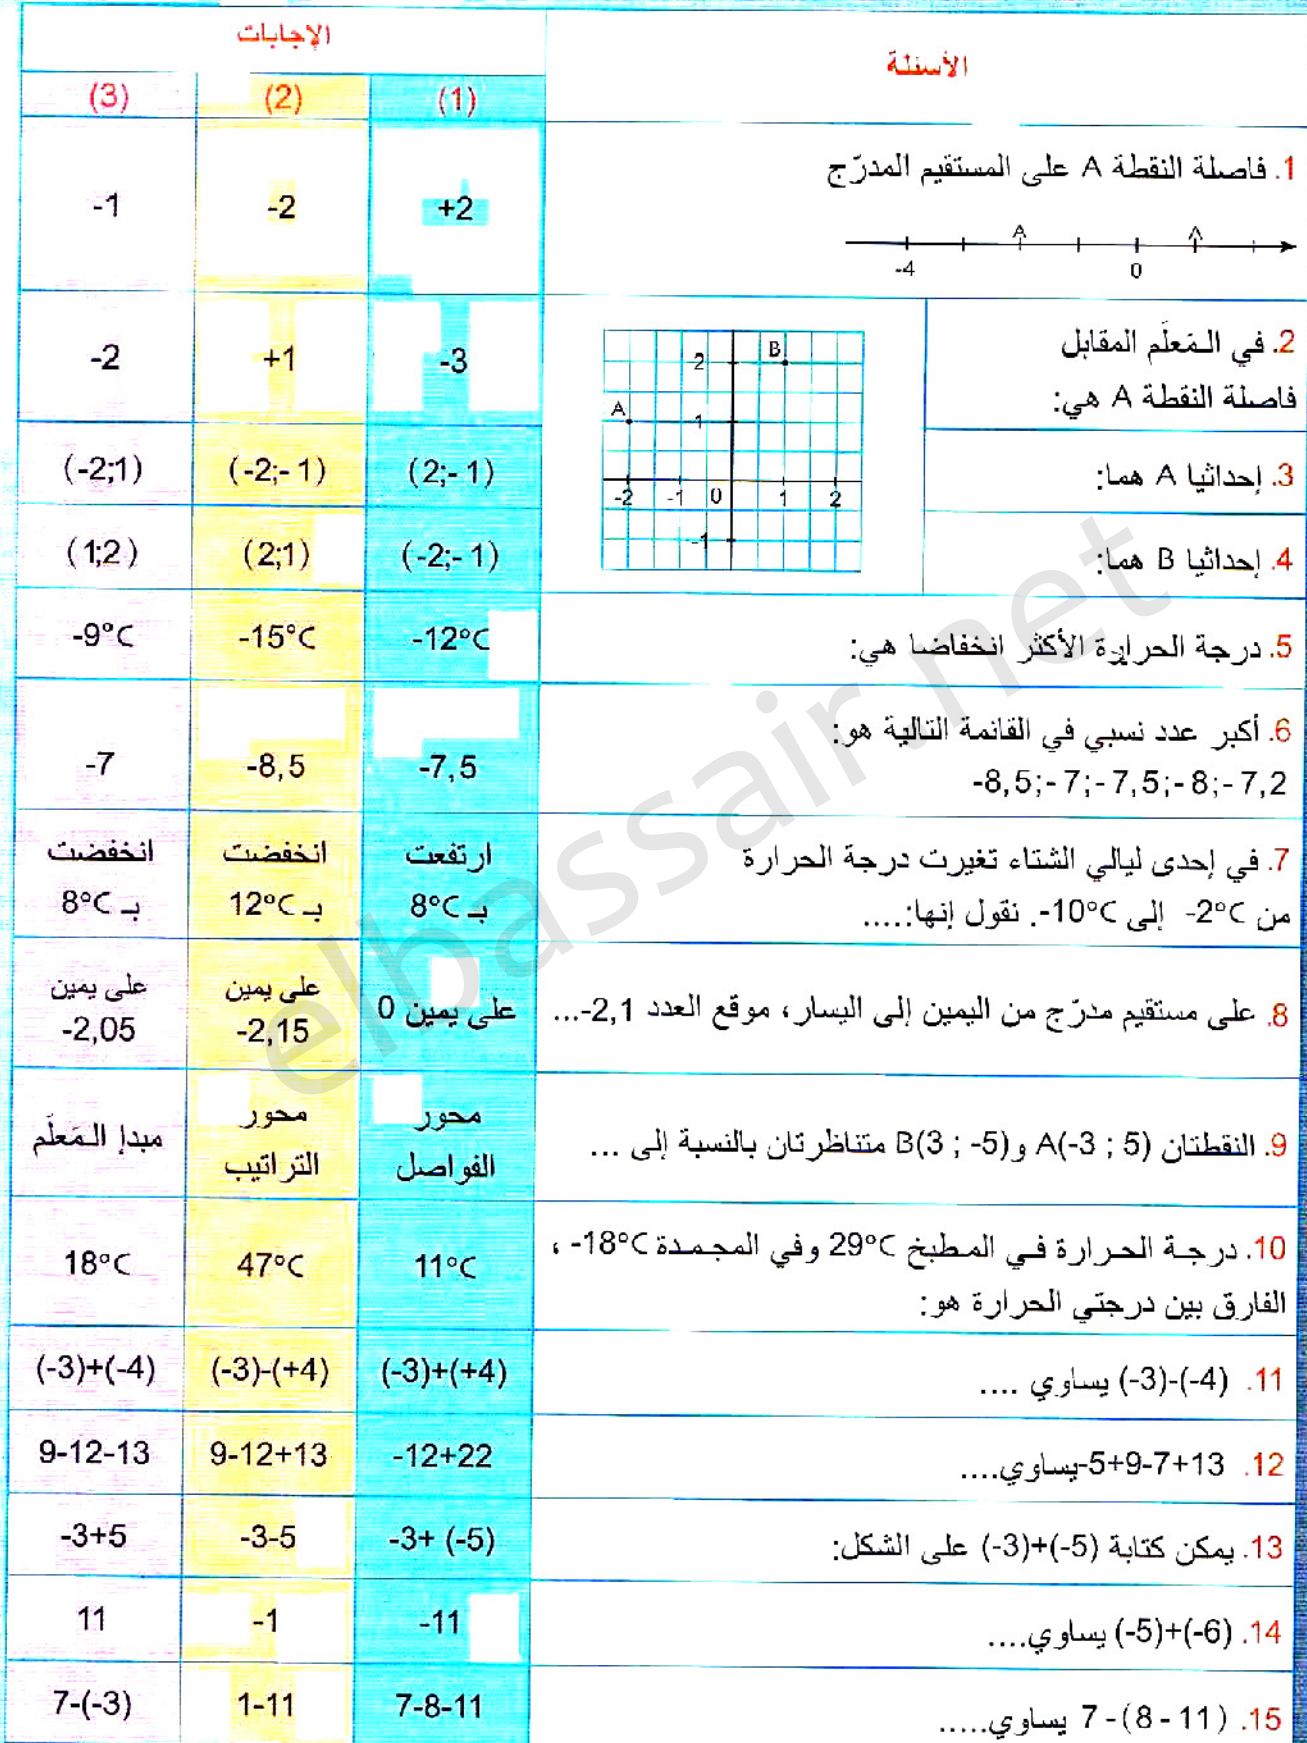 الأسئلة
الإجابات
(1) (2) (3)
1. فاصلة النقطة A على المستقيم المدرّج
A A
-4 0
+2 -2 -1
2. في المَعلَم المقابل
فاصلة النقطة A هي:
B
2
A
1
-2 -1 0 1 2
-1
-3 +1 -2
3. إحداثيا A هما:
(2;-1) (-2;-1) (-2;1)
4. إحداثيا B هما:
(-2;-1) (2;1) (1;2)
5. درجة الحرارة الأكثر انخفاضا هي:
-12°C -15°C -9°C
6. أكبر عدد نسبي في القائمة التالية هو:
-8,5;-7;-7,5;-8;-7,2
-7,5 -8,5 -7
7. في إحدى ليالي الشتاء تغيرت درجة الحرارة
من -2°C إلى -10°C. نقول إنها:....
ارتفعت
بـ 8°C
انخفضت
بـ 12°C
انخفضت
بـ 8°C
8. على مستقيم مدرّج من اليمين إلى اليسار، موقع العدد -2,1...
على يمين 0
على يمين
-2,15
على يمين
-2,05
9. النقطتان A(-3 ; 5) و B(3 ; -5) متناظرتان بالنسبة إلى ...
محور
الفواصل
محور
التراتيب
مبدإ المَعلَم
10. درجة الحرارة في المطبخ 29°C وفي المجمدة -18°C ،
الفارق بين درجتي الحرارة هو:
11°C 47°C 18°C
11. (-3)-(-4) يساوي ....
(-3)+(+4) (-3)-(+4) (-3)+(-4)
12. -5+9-7+13 يساوي....
-12+22 9-12+13 9-12-13
13. يمكن كتابة (-3)+(-5) على الشكل:
-3+ (-5) -3-5 -3+5
14. (-5)+(-6) يساوي....
-11 -1 11
15. 7-(8-11) يساوي.....
7-8-11 1-11 7-(-3)
elbassair.net